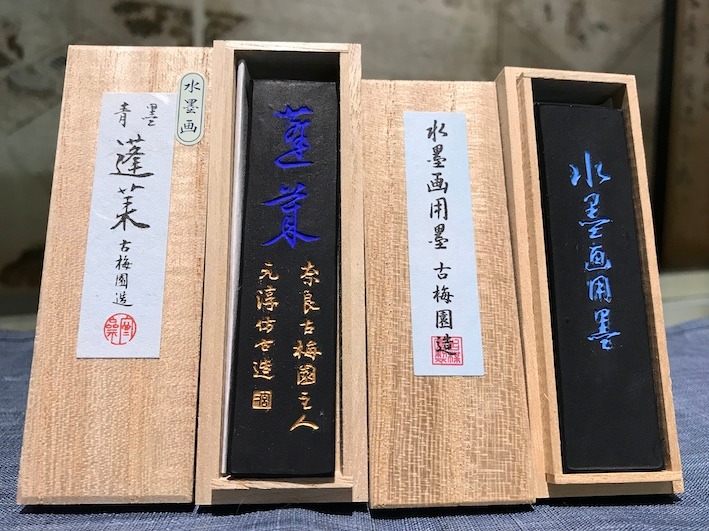 水墨画
青墨
蓬莱
古梅園造
蓬莱
奈良古梅園主人
元淳仿古造
水墨画用墨 古梅園造
水墨画用墨